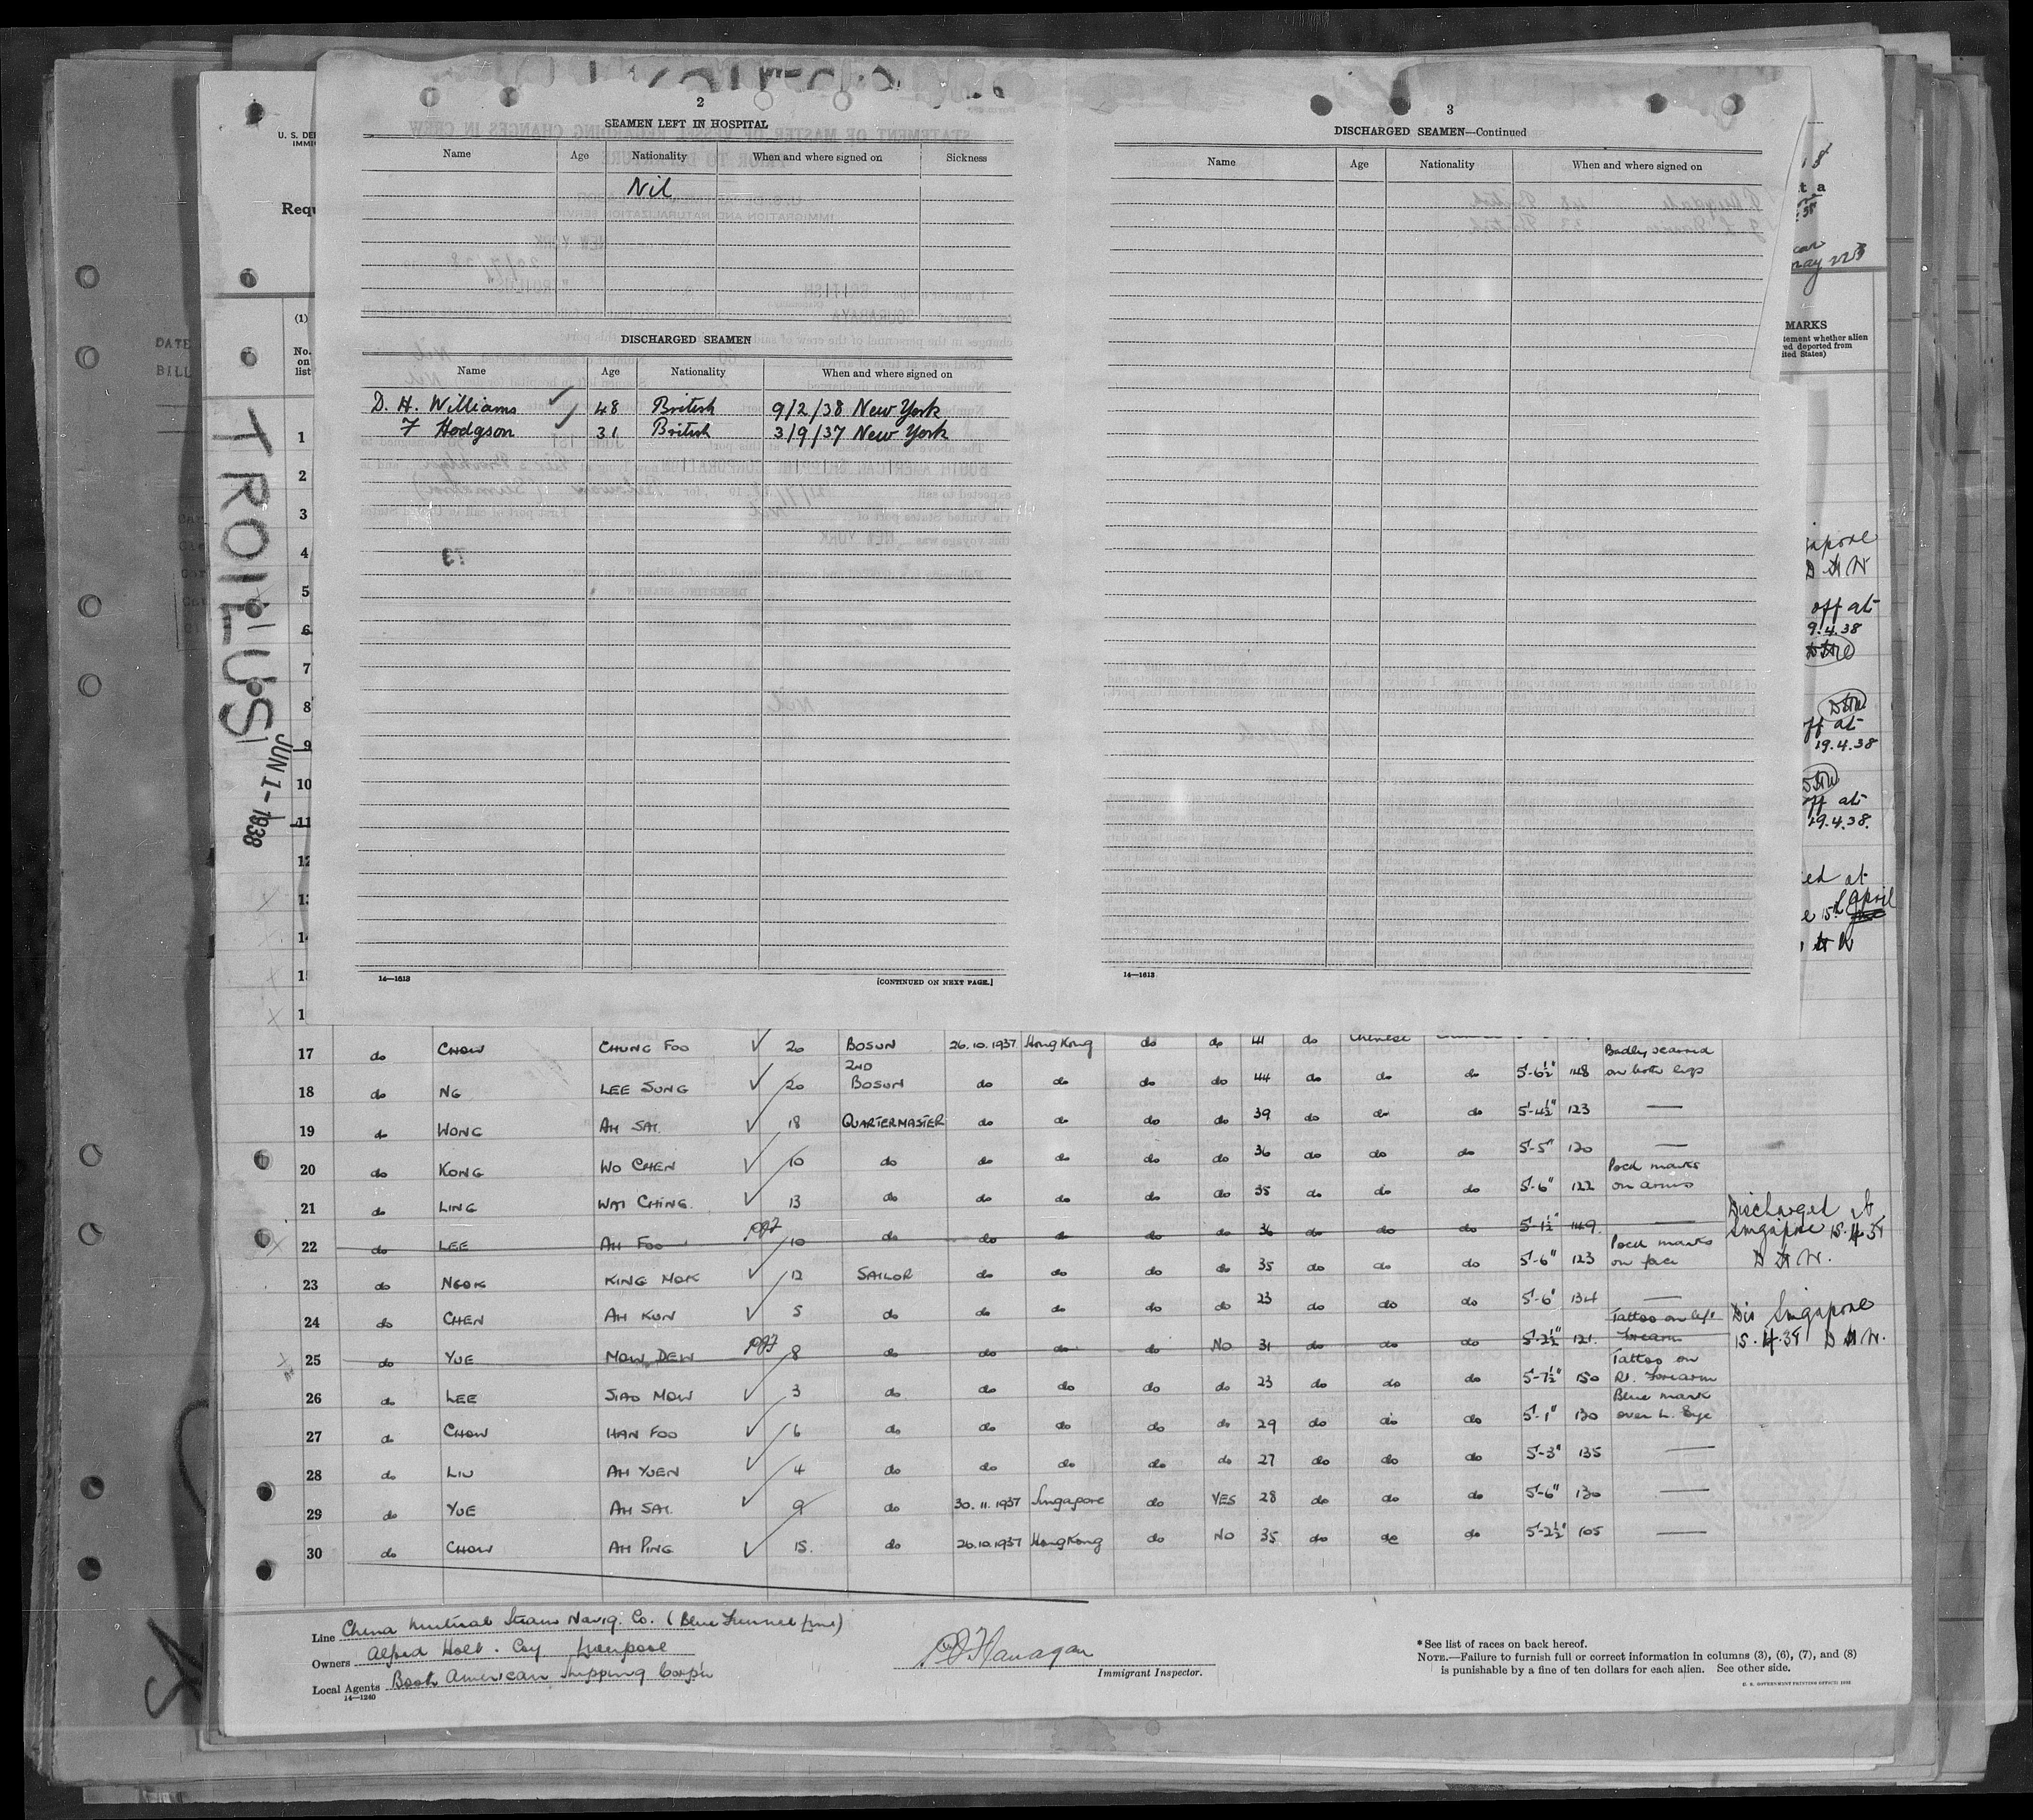 2
SEAMEN LEFT IN HOSPITAL
Name Age Nationality When and where signed on Sickness
Nil
DISCHARGED SEAMEN
Name Age Nationality When and where signed on
D. H. Williams 48 British 9/2/38 New York
F Hodgson 31 British 3/9/37 New York
14—1613 [CONTINUED ON NEXT PAGE.]
3
DISCHARGED SEAMEN—Continued
Name Age Nationality When and where signed on
14—1613
U. S. DE
IMMI
Requ
(1)
No.
on
list
DATE
BILL
TROILUS
JUN 1 - 1938
1
2
3
4
5
6
7
8
9
10
11
12
MARKS
off at
9.4.38
at
19.4.38
at
19.4.38.
at
15th April
17 do CHOW CHUNG FOO 20 BOSUN 26.10.1937 Hong Kong do do 41 do Chinese
18 do NG LEE SUNG 20 2ND BOSUN do do do do 44 do do do 5'-6½" 148 Badly scarred on both legs
19 do WONG AH SAI 18 QUARTERMASTER do do do do 39 do do do 5'-4½" 123 —
20 do KONG WO CHEN 10 do do do do do 36 do do do 5'-5" 120 —
21 do LING WAI CHING. 13 do do do do do 35 do do do 5'-6" 122 Pock marks on arms
22 do LEE AH FOO 10 do do do do do 36 do do do 5'-1½" 149. — Discharged at Singapore 15.4.38 D H W.
23 do NGOK KING MOK 12 SAILOR do do do do 35 do do do 5'-6" 123 Pock marks on face
24 do CHEN AH KUN 5 do do do do do 23 do do do 5'-6" 134 —
25 do YUE MOW DEW 8 do do do do NO 31 do do do 5'-2½" 121. Tattoo on left forearm Dis Singapore 15.4.38 D H W.
26 do LEE SIAO MOW 3 do do do do do 23 do do do 5'-7½" 150 Tattoo on Rt. Forearm
27 do CHOW HAN FOO 6 do do do do do 29 do do do 5'-1" 130 Blue mark over L. Eye
28 do LIU AH YUEN 4 do do do do do 27 do do do 5'-3" 135 —
29 do YUE AH SAI 9 do 30.11.1937 Singapore do YES 28 do do do 5'-6" 130 —
30 do CHOW AH PING 15. do 26.10.1937 Hong Kong do NO 35 do do do 5'-2½" 105 —
Line China Mutual Steam Navig. Co. (Blue Funnel Line)
Owners Alfred Holt. Coy Liverpool
Local Agents Booth American Shipping Corp'n
14—1240
Flanagan
Immigrant Inspector.
*See list of races on back hereof.
NOTE.—Failure to furnish full or correct information in columns (3), (6), (7), and (8)
is punishable by a fine of ten dollars for each alien. See other side.